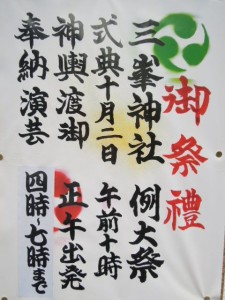 御祭禮
三峯神社 例大祭
式典十月二日 午前十時
神輿渡御 正午出発
奉納演芸 四時~七時まで